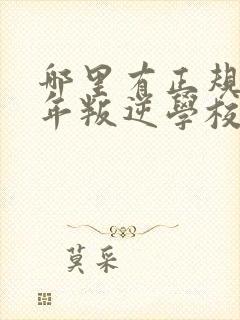 哪里有正规
年叛逆学校
莫采